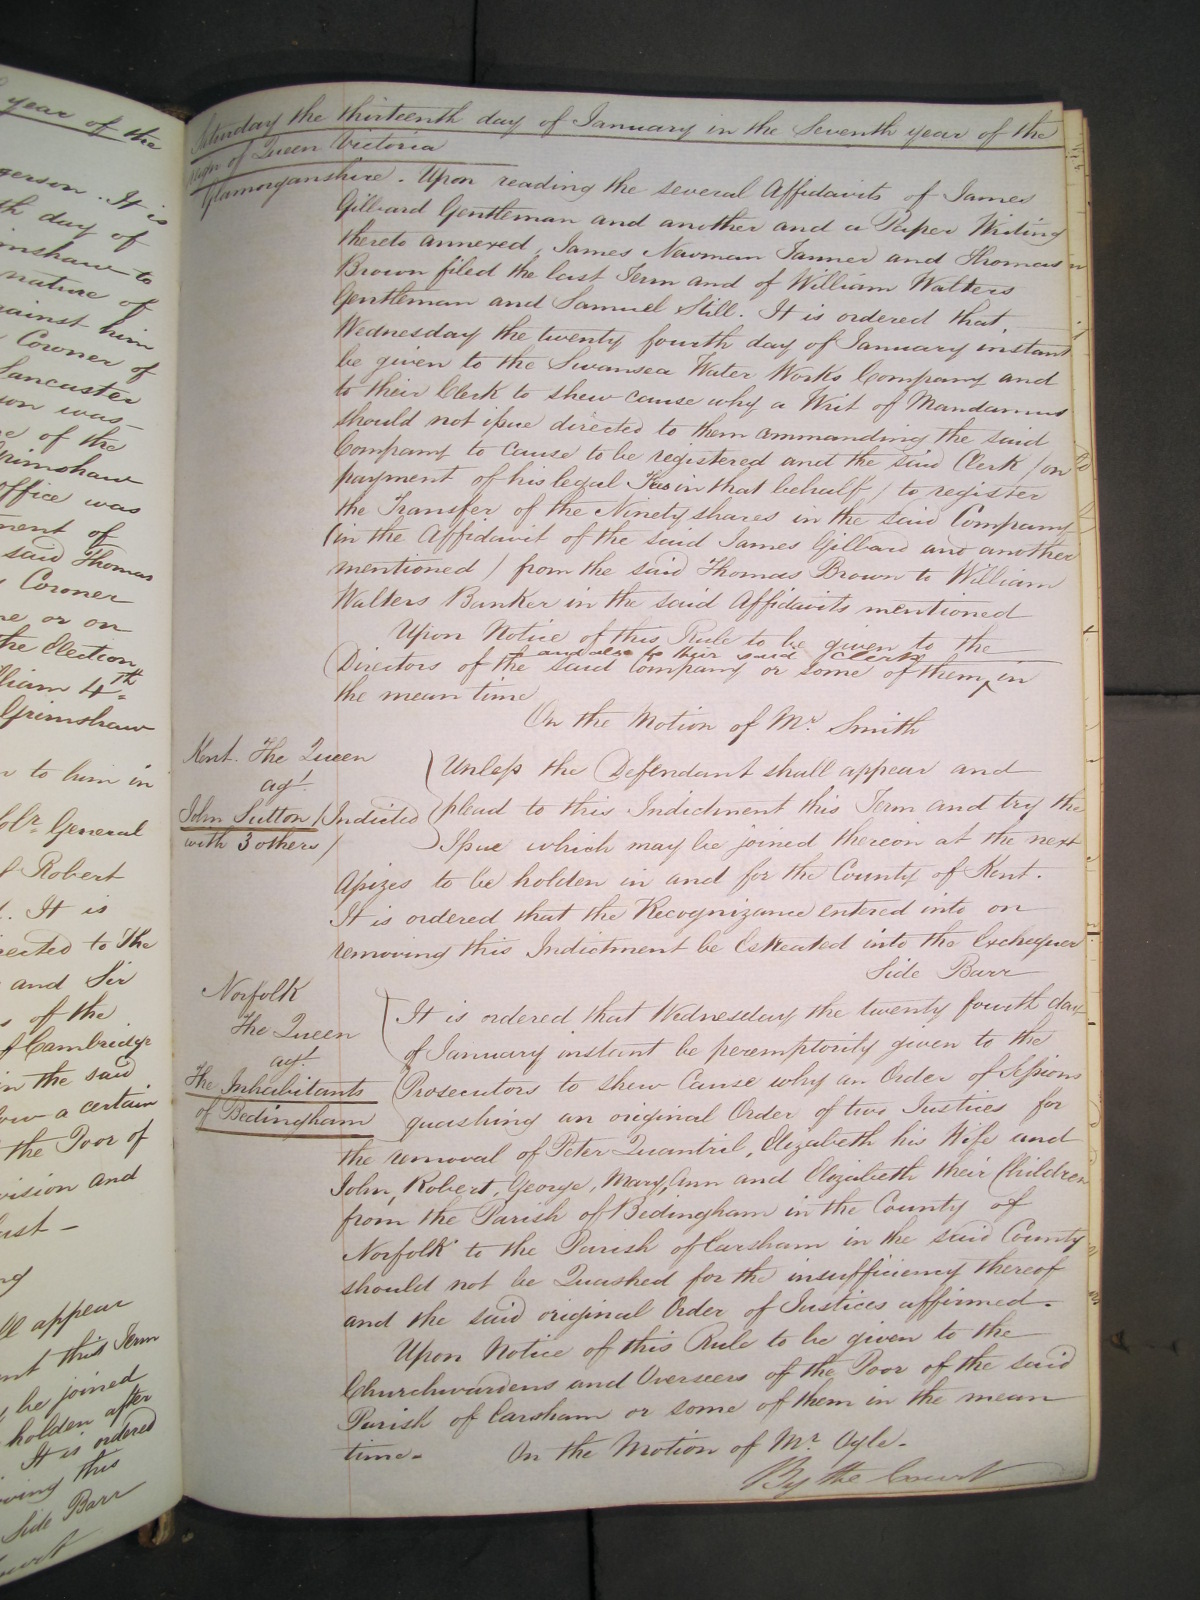 year of the
gerson. It is
th day of
mshaw to
nature of
gainst him
Coroner of
Lancaster
son was
e of the
Grimshaw
office was
ment of
said Thomas
s Coroner
ne or on
the Election
lliam 4th
Grimshaw
r to him in
Solr General
& Robert
d. It is
rected to The
and Sir
s of the
of Cambridge
in the said
how a certain
the Poor of
vision and
ust -
ng
ll appear
nt this Term
be joined
holden after
It is ordered
oving this
Side Barr
Court
Saturday the thirteenth day of January in the Seventh year of the
reign of Queen Victoria
Glamorganshire. Upon reading the several Affidavits of James
Gilbard Gentleman and another and a Paper Writing
thereto annexed, James Newman Tanner and Thomas
Brown filed the last Term and of William Walters
Gentleman and Samuel Still. It is ordered that
Wednesday the twenty fourth day of January instant
be given to the Swansea Water Works Company and
to their Clerk to shew cause why a Writ of Mandamus
should not issue directed to them commanding the said
Company to cause to be registered and the said Clerk (on
payment of his legal Fees in that behalf) to register
the Transfer of the Ninety shares in the said Company
(in the Affidavit of the said James Gilbard and another
mentioned) from the said Thomas Brown to William
Walters Banker in the said Affidavits mentioned
Upon Notice of this Rule to be given to the
and also to their said Clerk
Directors of the said Company or some of them ^ in
the mean time
On the Motion of Mr. Smith
Kent. The Queen
agt.
John Sutton (Indicted
with 3 others)
Unless the Defendant shall appear and
plead to this Indictment this Term and try the
Issue which may be joined thereon at the next
Assizes to be holden in and for the County of Kent.
It is ordered that the Recognizance entered into on
removing this Indictment be Estreated into the Exchequer
Side Barr
Norfolk
The Queen
agt.
The Inhabitants
of Bedingham
It is ordered that Wednesday the twenty fourth day
of January instant be peremptorily given to the
Prosecutors to shew Cause why an Order of Sessions
quashing an original Order of two Justices for
the removal of Peter Quantril, Elizabeth his Wife and
John, Robert, George, Mary, Ann and Elizabeth their Children
from the Parish of Bedingham in the County of
Norfolk to the Parish of Earsham in the said County
should not be Quashed for the insufficiency thereof
and the said original Order of Justices affirmed.
Upon Notice of this Rule to be given to the
Churchwardens and Overseers of the Poor of the said
Parish of Earsham or some of them in the mean
time. On the Motion of Mr. Ogle.
By the Court